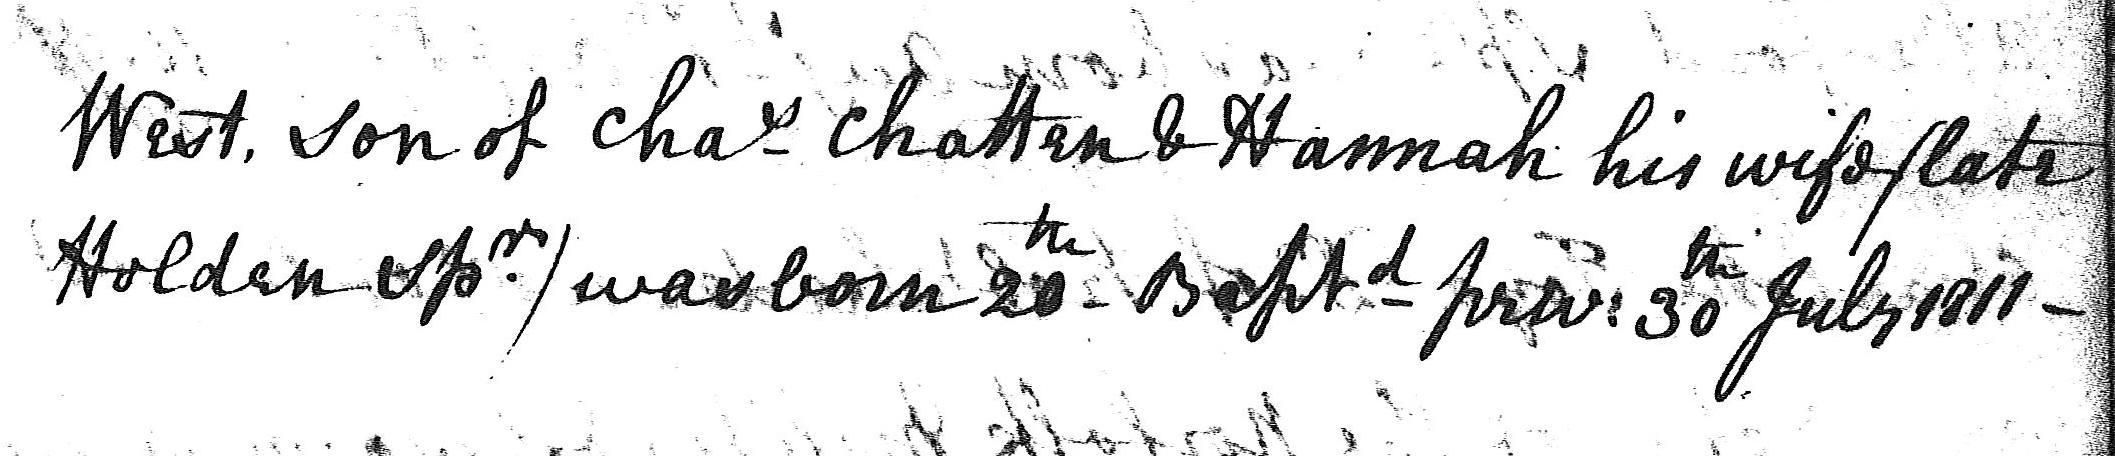 West. son of Chas Chatten & Hannah his wife (late
Holden Spr.) was born 20th Baptd priv: 30th July 1811 -